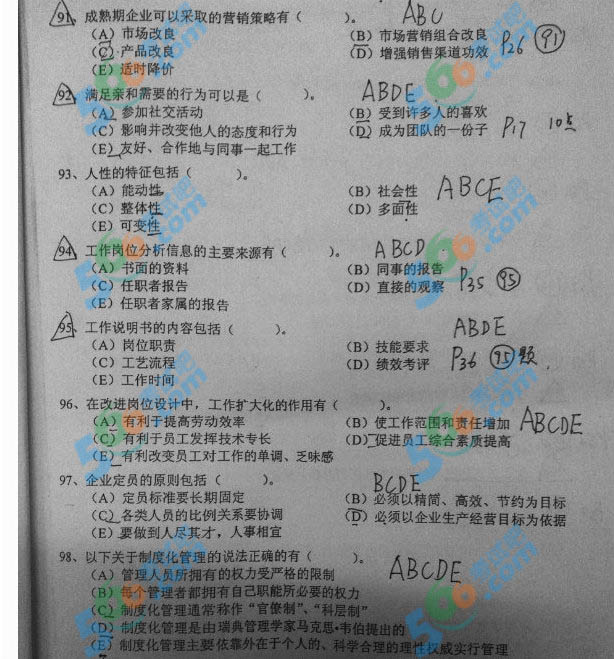 91、成熟期企业可以采取的营销策略有（　）。 ABC
（A）市场改良 （B）市场营销组合改良
（C）产品改良 （D）增强销售渠道功效 P26 91
（E）适时降价
92、满足亲和需要的行为可以是（　）。 ABDE
（A）参加社交活动 （B）受到许多人的喜欢
（C）影响并改变他人的态度和行为 （D）成为团队的一份子 P17
（E）友好、合作地与同事一起工作
93、人性的特征包括（　）。 ABCE
（A）能动性 （B）社会性
（C）整体性 （D）多面性
（E）可变性
94、工作岗位分析信息的主要来源有（　）。 ABCD
（A）书面的资料 （B）同事的报告
（C）任职者报告 （D）直接的观察 P35 95
（E）任职者家属的报告
95、工作说明书的内容包括（　）。 ABDE
（A）岗位职责 （B）技能要求
（C）工艺流程 （D）绩效考评 P36 95题
（E）工作时间
96、在改进岗位设计中，工作扩大化的作用有（　）。
（A）有利于提高劳动效率 （B）使工作范围和责任增加 ABCDE
（C）有利于员工发挥技术专长 （D）促进员工综合素质提高
（E）有利改变员工对工作的单调、乏味感
97、企业定员的原则包括（　）。 BCDE
（A）定员标准要长期固定 （B）必须以精简、高效、节约为目标
（C）各类人员的比例关系要协调 （D）必须以企业生产经营目标为依据
（E）要做到人尽其才，人事相宜
98、以下关于制度化管理的说法正确的有（　）。
（A）管理人员所拥有的权力受严格的限制 ABCDE
（B）每个管理者都拥有自己职能所必要的权力
（C）制度化管理通常称作“官僚制”、“科层制”
（D）制度化管理是由瑞典管理学家马克思·韦伯提出的
（E）制度化管理主要依靠外在于个人的、科学合理的理性权威实行管理